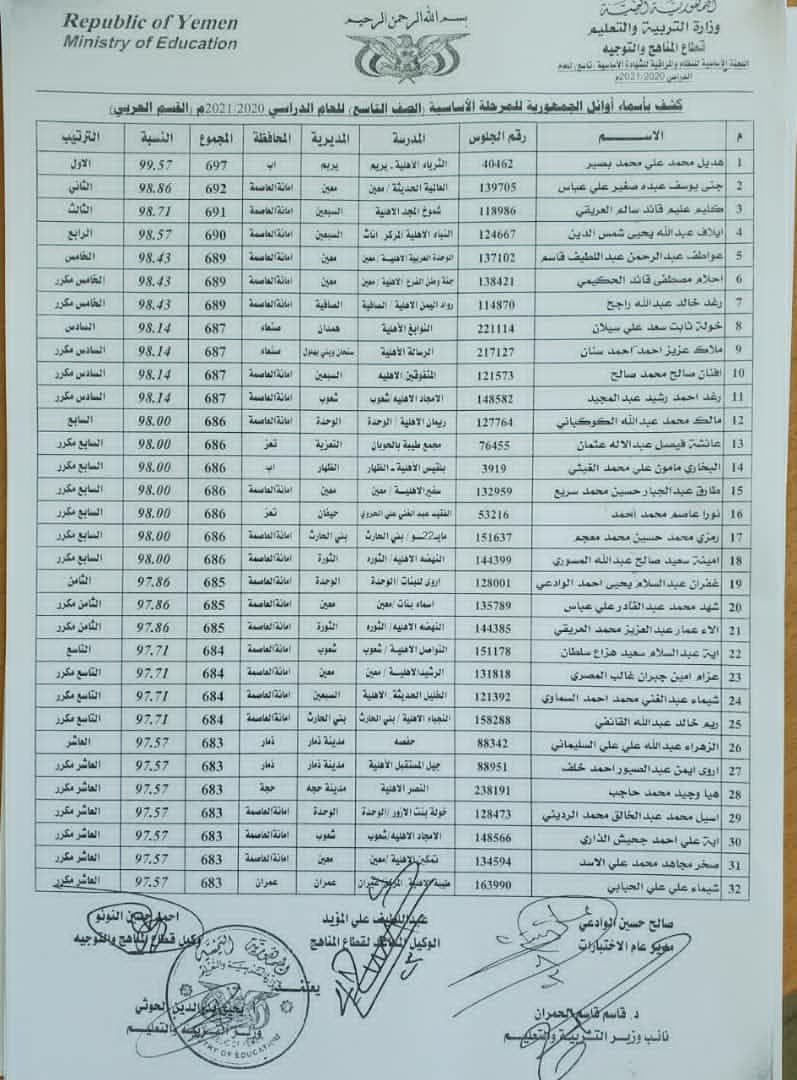 Republic of Yemen
Ministry of Education
بسم الله الرحمن الرحيم
الجمهورية اليمنية
وزارة التربية والتعليم
قطاع المناهج والتوجيه
اللجنة الأساسية للنظام والمراقبة للشهادة الأساسية (تاسع) للعام
الدراسي 2021/2020م
كشف بأسماء أوائل الجمهورية للمرحلة الأساسية (الصف التاسع) للعام الدراسي 2021/2020م (القسم العربي)
م الاســـم رقم الجلوس المدرسة المديرية المحافظة المجموع النسبة الترتيب
1 هديل محمد علي محمد بصير 40462 الثرياء الأهلية - يريم يريم اب 697 99.57 الاول
2 جنى يوسف عبده صغير علي عباس 139705 العالمية الحديثة / معين معين امانة العاصمة 692 98.86 الثاني
3 كليم عليم قائد سالم العريقي 118986 شموخ المجد الاهلية السبعين امانة العاصمة 691 98.71 الثالث
4 ايلاف عبدالله يحيى شمس الدين 124667 النبلاء الاهلية المركز اناث السبعين امانة العاصمة 690 98.57 الرابع
5 عواطف عبدالرحمن عبداللطيف قاسم 137102 الوحدة العربية الاهلية / معين معين امانة العاصمة 689 98.43 الخامس
6 احلام مصطفى قائد الحكيمي 138421 جنة وطن الفرع الاهلية / معين معين امانة العاصمة 689 98.43 الخامس مكرر
7 رغد خالد عبدالله راجح 114870 رواد اليمن الاهلية / الصافية الصافية امانة العاصمة 689 98.43 الخامس مكرر
8 خولة ثابت سعد علي سيلان 221114 النوابغ الأهلية همدان صنعاء 687 98.14 السادس
9 ملاك عزيز احمد احمد سنان 217127 الرسالة الأهلية سنحان وبني بهلول صنعاء 687 98.14 السادس مكرر
10 افنان صالح محمد صالح 121573 المتفوقين الاهليه السبعين امانة العاصمة 687 98.14 السادس مكرر
11 رغد احمد رشيد عبدالمجيد 148582 الامجاد الاهليه شعوب شعوب امانة العاصمة 687 98.14 السادس مكرر
12 مالك محمد عبدالله الكوكباني 127764 ريمان الاهلية / الوحدة الوحدة امانة العاصمة 686 98.00 السابع
13 عائشة فيصل عبدالاله عثمان 76455 مجمع طيبة بالحوبان التعزية تعز 686 98.00 السابع مكرر
14 البخاري مامون علي محمد 3919 بلقيس الأهلية - الظهار الظهار اب 686 98.00 السابع مكرر
15 طارق عبدالجبار حسين محمد سريع 132959 الاهلية / معين معين امانة العاصمة 686 98.00 السابع مكرر
16 نورا عاصم محمد احمد 53216 الفقيد عبد الغني علي حيفان تعز 686 98.00 السابع مكرر
17 رمزي محمد حسين محمد معجم 151637 22 مايـــو / بني الحارث بني الحارث امانة العاصمة 686 98.00 السابع مكرر
18 امينة سعيد صالح عبدالله المسوري 144399 النهضه الاهليه / الثوره الثورة امانة العاصمة 686 98.00 السابع مكرر
19 غفران عبدالسلام يحيى احمد الوادعي 128001 اروى للبنات / الوحدة الوحدة امانة العاصمة 685 97.86 الثامن
20 شهد محمد عبدالقادر علي عباس 135789 اسماء بنات / معين معين امانة العاصمة 685 97.86 الثامن مكرر
21 الاء عمار عبدالعزيز محمد العريقي 144385 النهضه الاهليه / الثوره الثورة امانة العاصمة 685 97.86 الثامن مكرر
22 اية عبدالسلام سعيد هزاع سلطان 151178 التواصل الاهلية / شعوب شعوب امانة العاصمة 684 97.71 التاسع
23 عزام امين جبران غالب المصري 131818 الرشيد الاهلية / معين معين امانة العاصمة 684 97.71 التاسع مكرر
24 شيماء عبدالغني محمد احمد السماوي 121392 الخليل الحديثة الاهلية السبعين امانة العاصمة 684 97.71 التاسع مكرر
25 ريم خالد عبدالله القانفي 158288 النجباء الاهلية / بني الحارث بني الحارث امانة العاصمة 684 97.71 التاسع مكرر
26 الزهراء عبدالله علي علي السليماني 88342 حفصه مدينة ذمار ذمار 683 97.57 العاشر
27 اروى ايمن عبدالصبور احمد خلف 88951 جيل المستقبل الأهلية مدينة ذمار ذمار 683 97.57 العاشر مكرر
28 هيا وحيد محمد حاجب 238191 النصر الاهلية مدينة حجه حجة 683 97.57 العاشر مكرر
29 اسيل محمد عبدالخالق محمد الرديني 128473 خولة بنت الازور / الوحدة الوحدة امانة العاصمة 683 97.57 العاشر مكرر
30 اية علي احمد جحيش الذاري 148566 الامجاد الاهليه / شعوب شعوب امانة العاصمة 683 97.57 العاشر مكرر
31 صخر مجاهد محمد علي الاسد 134594 تمكين الاهلية / معين معين امانة العاصمة 683 97.57 العاشر مكرر
32 شيماء علي علي الحبابي 163990 طيبة الاهلية عمران عمران عمران 683 97.57 العاشر مكرر
صالح حسين الوادعي
مدير عام الاختبارات
عبداللطيف علي المؤيد
الوكيل المساعد لقطاع المناهج
احمد حسين النونو
وكيل قطاع المناهج والتوجيه
يعتمد
د. قاسم قاسم الحمران
نائب وزير التربية والتعليم
يحيى بدرالدين الحوثي
وزير التربية والتعليم